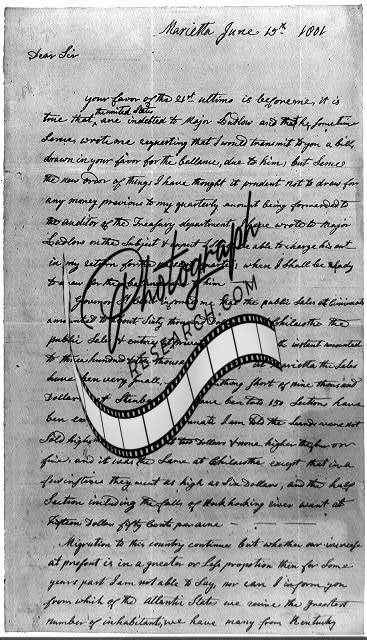 Marietta June 15th 1801
Dear Sir
your favor of the 21st ultimo is before me, it is
the united States
true that are indebted to Major Ludlow and that he Sometime
Sence, wrote me requesting that I would transmit to you a bill
drawn in your favor for the ballance, due to him, but Sence
the new order of things I have thought it prudent not to draw for
any money previous to my quarterly account being forwarded to
the auditor of the Treasury department, I have wrote to Major
Ludlow on the Subject & expect to be able to charge his acct
in my return for the when I shall be ready
to draw for the ballance him
Governor St informed me that the public Sales at Cincinnati
amounted to about Sixty thousand Chilacothe the
public Sales & entries at private the instant amounted
to three hundred fifty thousand at Marietta the Sales
have been very Small, Something short of nine thousand
Dollars at Steuben have ben told 150 Sections have
ben I am told the Lands were not
Sold higher two dollars & none higher than
five, and it was the Same at Chilacothe except that in a
few instances they went as high as Six Dollars, and the half
Section including the falls of Hockhocking river went at
Sixteen Dollars fifty Cents per acre
Migration to this country continues but whether our increase
at present is in a greater or less proportion then for Some
years past I am not able to Say, nor can I inform you
from which of the atlantic States we receive the greatest
number of inhabitants, we have many from Kentucky
Photograph
RESEARCH.COM